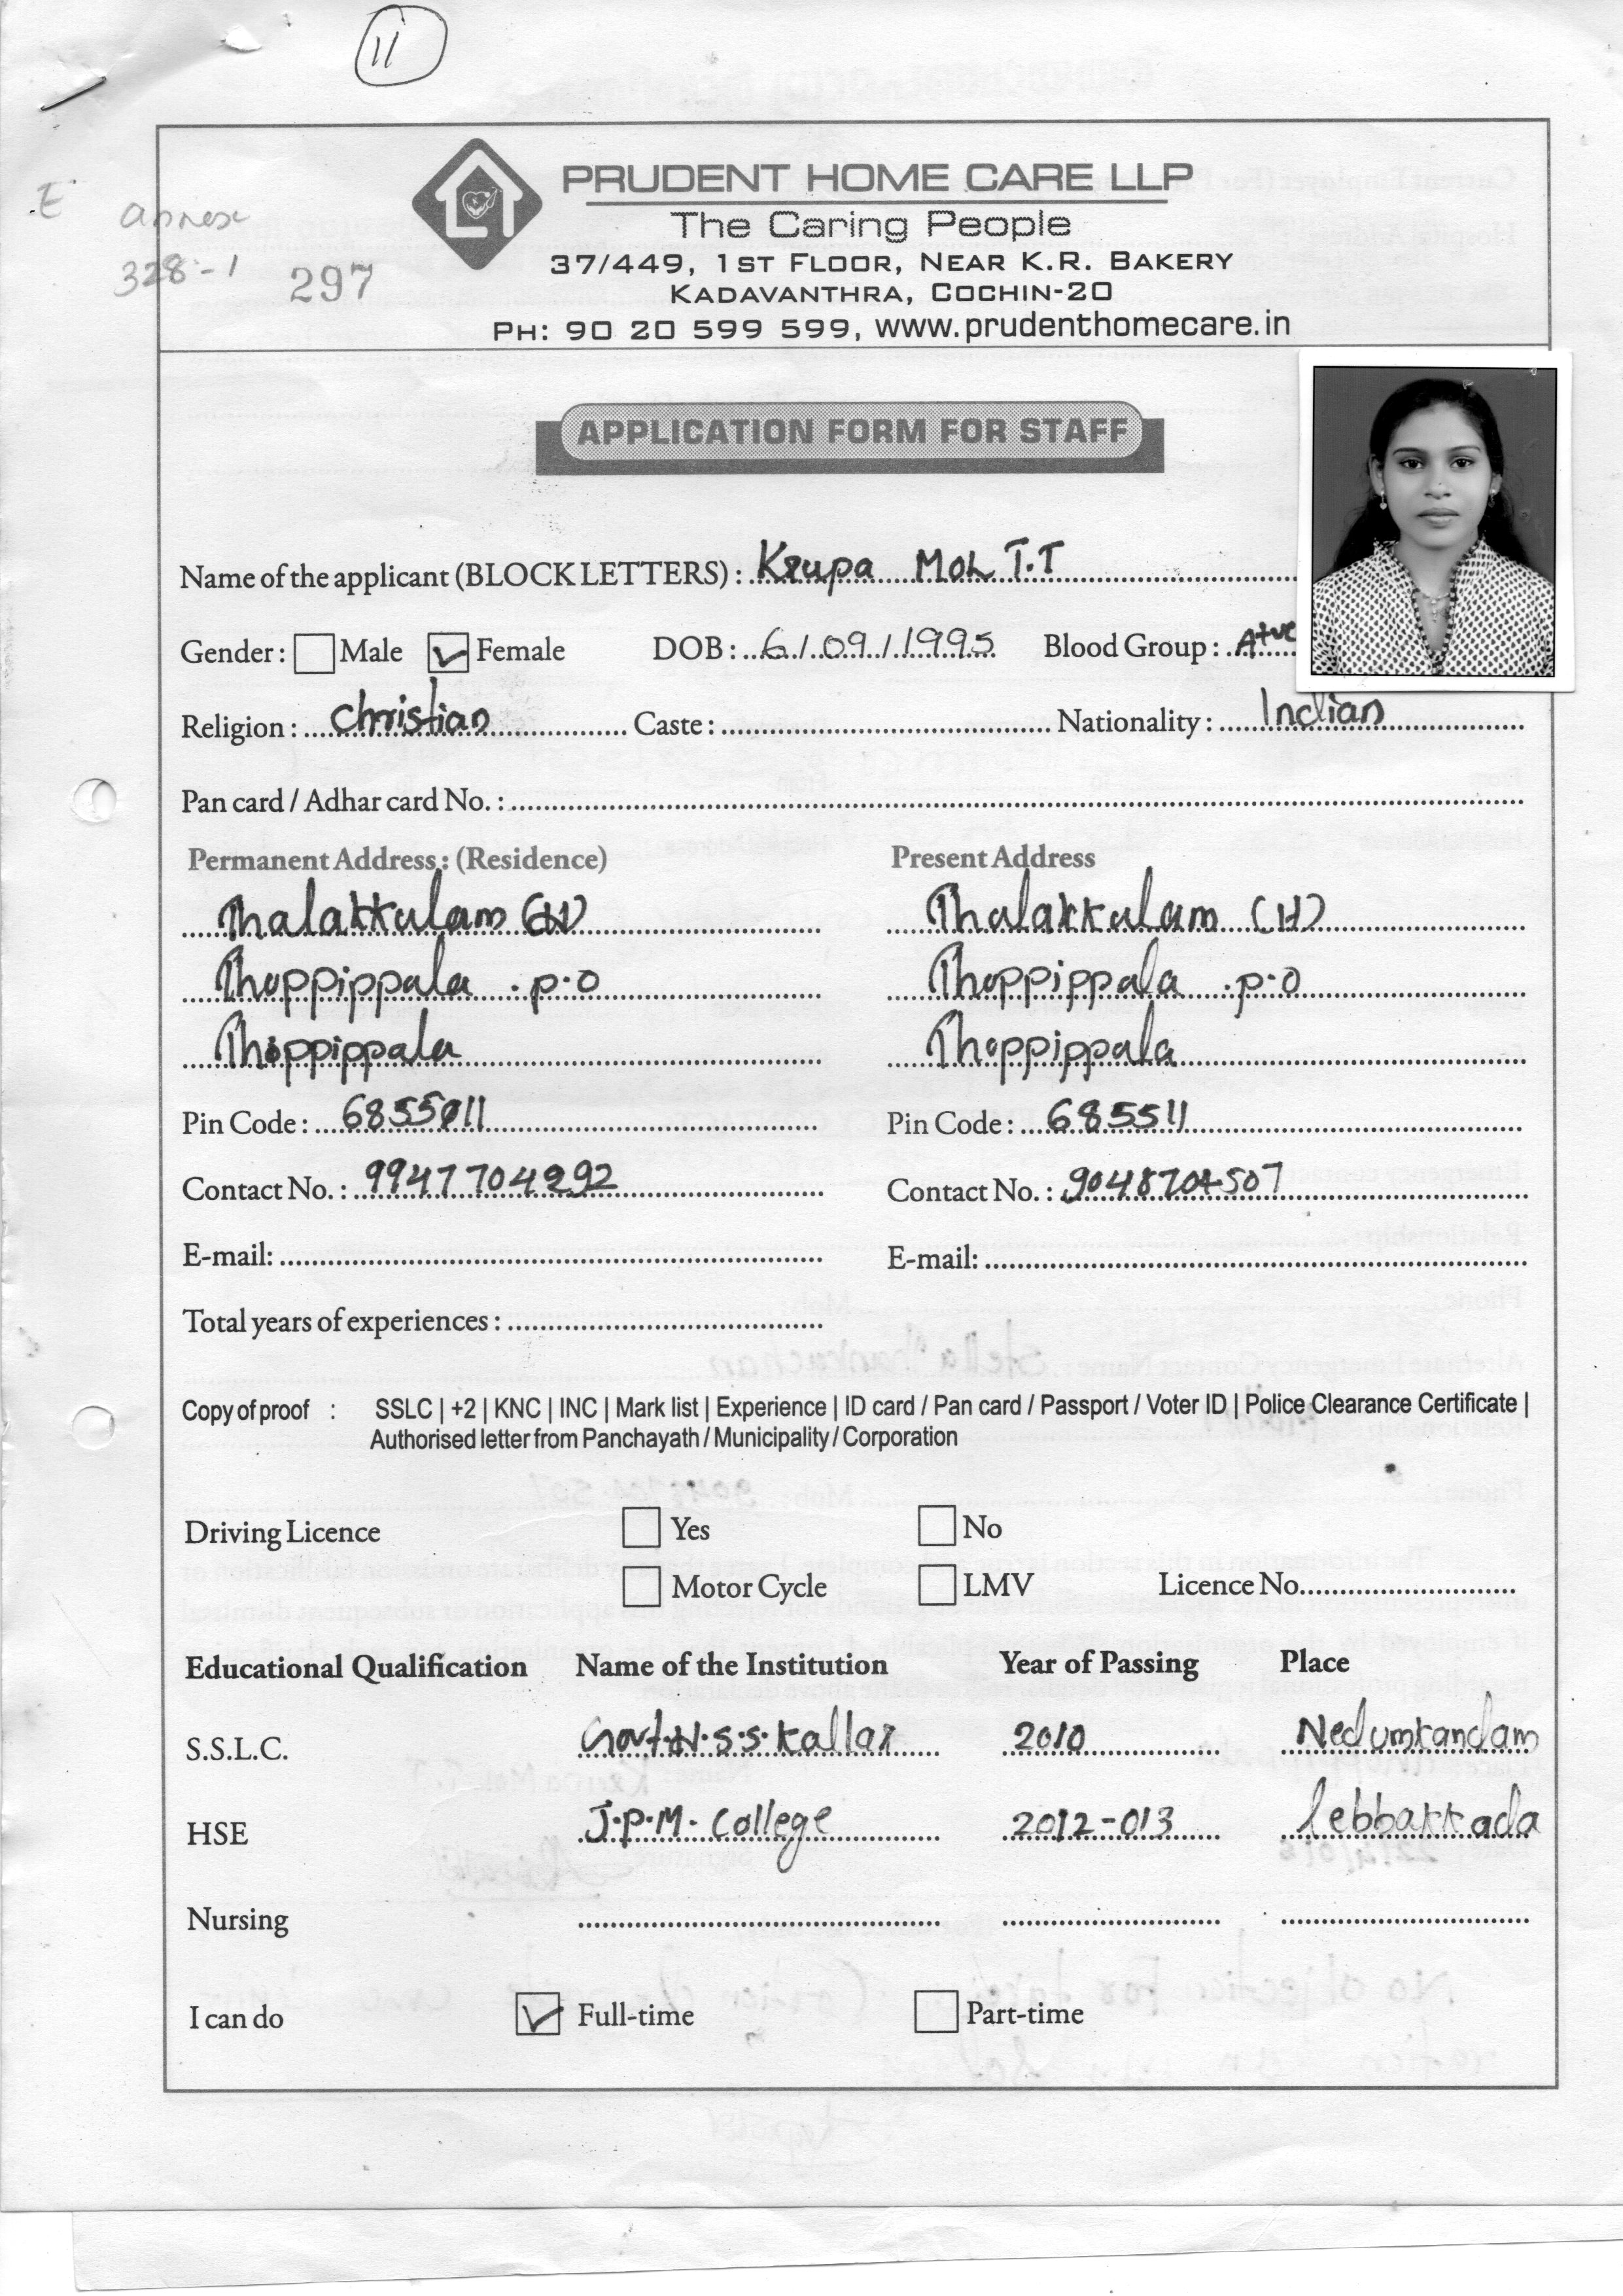 11
E annex
328-1 297
PRUDENT HOME CARE LLP
The Caring People
37/449, 1ST FLOOR, NEAR K.R. BAKERY
KADAVANTHRA, COCHIN-20
PH: 90 20 599 599, www.prudenthomecare.in
APPLICATION FORM FOR STAFF
Name of the applicant (BLOCK LETTERS) : Krupa MOL T.T
Gender : Male Female DOB : 6/09/1995 Blood Group : A+ve
Religion : Christian Caste : Nationality : Indian
Pan card / Adhar card No. :
Permanent Address : (Residence) Present Address
Thalakkulam (H) Thalakkulam (H)
Thoppippala . p.o Thoppippala . p.o
Thoppippala Thoppippala
Pin Code : 685511 Pin Code : 685511
Contact No. : 9947704292 Contact No. : 9048704507
E-mail: E-mail:
Total years of experiences :
Copy of proof : SSLC | +2 | KNC | INC | Mark list | Experience | ID card / Pan card / Passport / Voter ID | Police Clearance Certificate |
Authorised letter from Panchayath / Municipality / Corporation
Driving Licence Yes No
Motor Cycle LMV Licence No.
Educational Qualification Name of the Institution Year of Passing Place
S.S.L.C. Govt.H.S.S.Kallar 2010 Nedumkandam
HSE J.P.M. College 2012-013 lebbakkada
Nursing
I can do Full-time Part-time